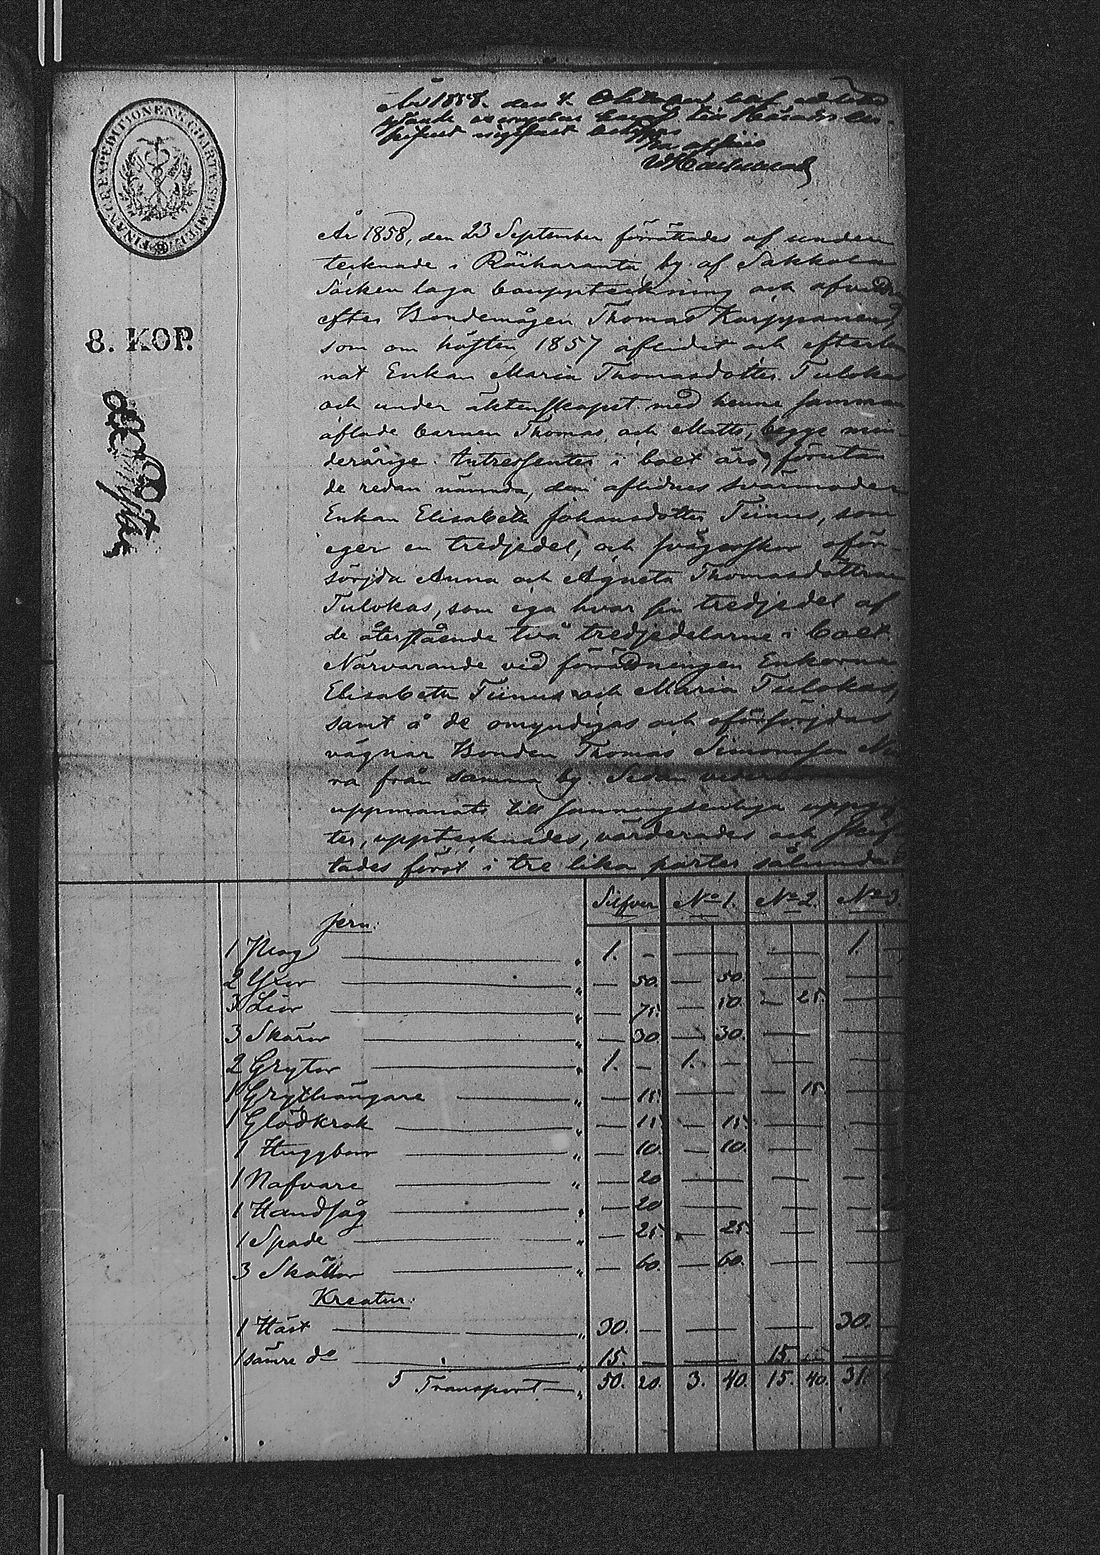 År 1858. den 4 Oktober har detta
FINANCE EXPEDITIONENS CHARTÆ STEMPEL
8. KOP.
År 1858, den 23 September förrättades af under
tecknade i Räiharanta by af Sakkola
Socken laga bouppteckning och
efter Bondemågen Thomas Karppanen,
som om hösten 1857 aflidit och efterlem
nat Enkan Maria Thomasdotter Tulokas
och under äktenskapet med henne samman
aflade barnen Thomas och Matts, begge min
derårige. Intressenter i boet äro, förutom
de redan nämnda, den aflidnes svärmoder
Enkan Elisabeth Johansdotter Tiinus, som
eger en tredjedel, och svägerskor oför-
sörjda Anna och Agneta Thomasdöttrar
Tulokas, som ega hvar sin tredjedel af
de återstående två tredjedelarne i boet.
Närvarande vid förrättningen Enkorna
Elisabeth Tiinus och Maria Tulokas,
samt å de omyndigas och oförsörjdas
vägnar Bonden Thomas Simonsson
ra från samma by. Sedan
uppmanats till sanningsenliga uppgif
ter, upptecknades, värderades och skif
tades först i tre lika parter sålunda
Silfver No 1. No 2. No 3.
Jern.
1 Plog " 1. — — — — — 1. —
2 Yxor " — 50. — 50. — — — —
3 Liar " — 75. — 50. — 25. — —
3 Skäror " — 30. — 30. — — — —
2 Grytor " 1. — 1. — — — — —
1 Grythängare " — 15. — — — 15. — —
1 Glödkrok " — 15. — 15. — — — —
1 Huggbom " — 10. — 10. — — — —
1 Nafvare " — 20 — — — — — —
1 Handsåg " — 20 — — — — — —
1 Spade " — 25. — 25. — — — —
3 Skällor " — 60. — 60. — — — —
Kreatur.
1 Häst " 30. — — — — — 30. —
1 sämre do " 15. — — — 15. — — —
Transport " 50. 20. 3. 40. 15. 40. 31.